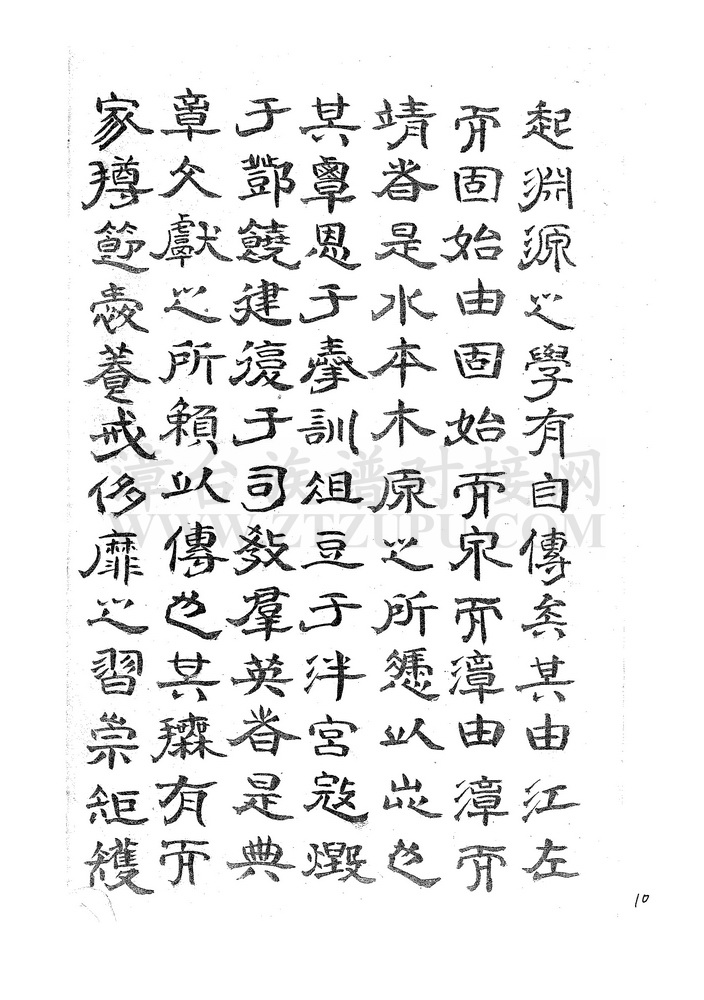 起淵源之學有自傳矣其由江左
而固始由固始而泉而漳由漳而
靖者是水本木原之所憑以出也
其覃恩于拳訓俎豆于泮宮寇燬
于酆饒建復于司教羣英者是典
章文獻之所賴以傳也其有而
家撙節養戒侈靡之習崇矩矱
漳台族谱对接网
WWW.ZTZUPU.COM
10